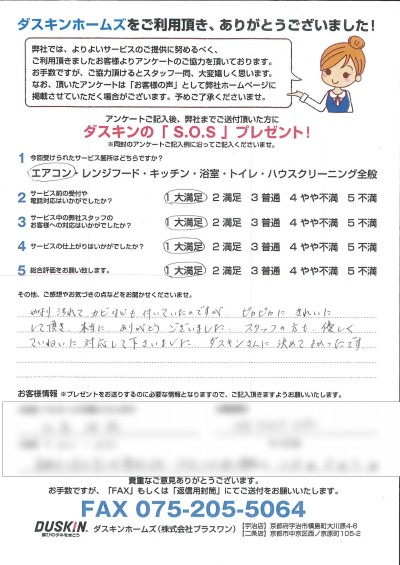 ダスキンホームズをご利用頂き、ありがとうございました！
弊社では、よりよいサービスのご提供に努めるべく、
ご利用頂きましたお客様よりアンケートのご協力を頂いております。
お手数ですが、ご協力頂けるとスタッフ一同、大変嬉しく思います。
なお、頂いたアンケートは「お客様の声」として弊社ホームページに
掲載させていただく場合がございます。予めご了承くださいませ。
アンケートご記入後、弊社までご送付頂いた方に
ダスキンの「S.O.S」プレゼント！
※同封のアンケートご記入例に沿ってご記入くださいませ。
1 今回受けられたサービス箇所はどちらですか？
エアコン・レンジフード・キッチン・浴室・トイレ・ハウスクリーニング全般
2 サービス前の受付や
電話対応はいかがでしたか？ 1 大満足 2 満足 3 普通 4 やや不満 5 不満
3 サービス中の弊社スタッフの
お客様への対応はいかがでしたか？ 1 大満足 2 満足 3 普通 4 やや不満 5 不満
4 サービスの仕上がりはいかがでしたか？ 1 大満足 2 満足 3 普通 4 やや不満 5 不満
5 総合評価をお願い致します。 1 大満足 2 満足 3 普通 4 やや不満 5 不満
その他、ご感想やお気づきの点などをお聞かせくださいませ。
かなり 汚れて カビなども 付いていたのですが、ピカピカに きれいに
して頂き、本当に ありがとう ございました。スタッフの方も 優しく
ていねいに 対応して下さいました。ダスキンさんに 決めて よかったです
お客様情報 ※プレゼントをお送りするのに必要な情報となりますので、ご記入頂きますようお願いいたします。
貴重なご意見ありがとうございます。
お手数ですが、「FAX」もしくは「返信用封筒」にてご送付をお願いいたします。
FAX 075-205-5064
DUSKIN
喜びのタネをまこう
ダスキンホームズ（株式会社プラスワン）
【宇治店】京都府宇治市槇島町大川原4-6
【二条店】京都市中京区西ノ京原町105-2